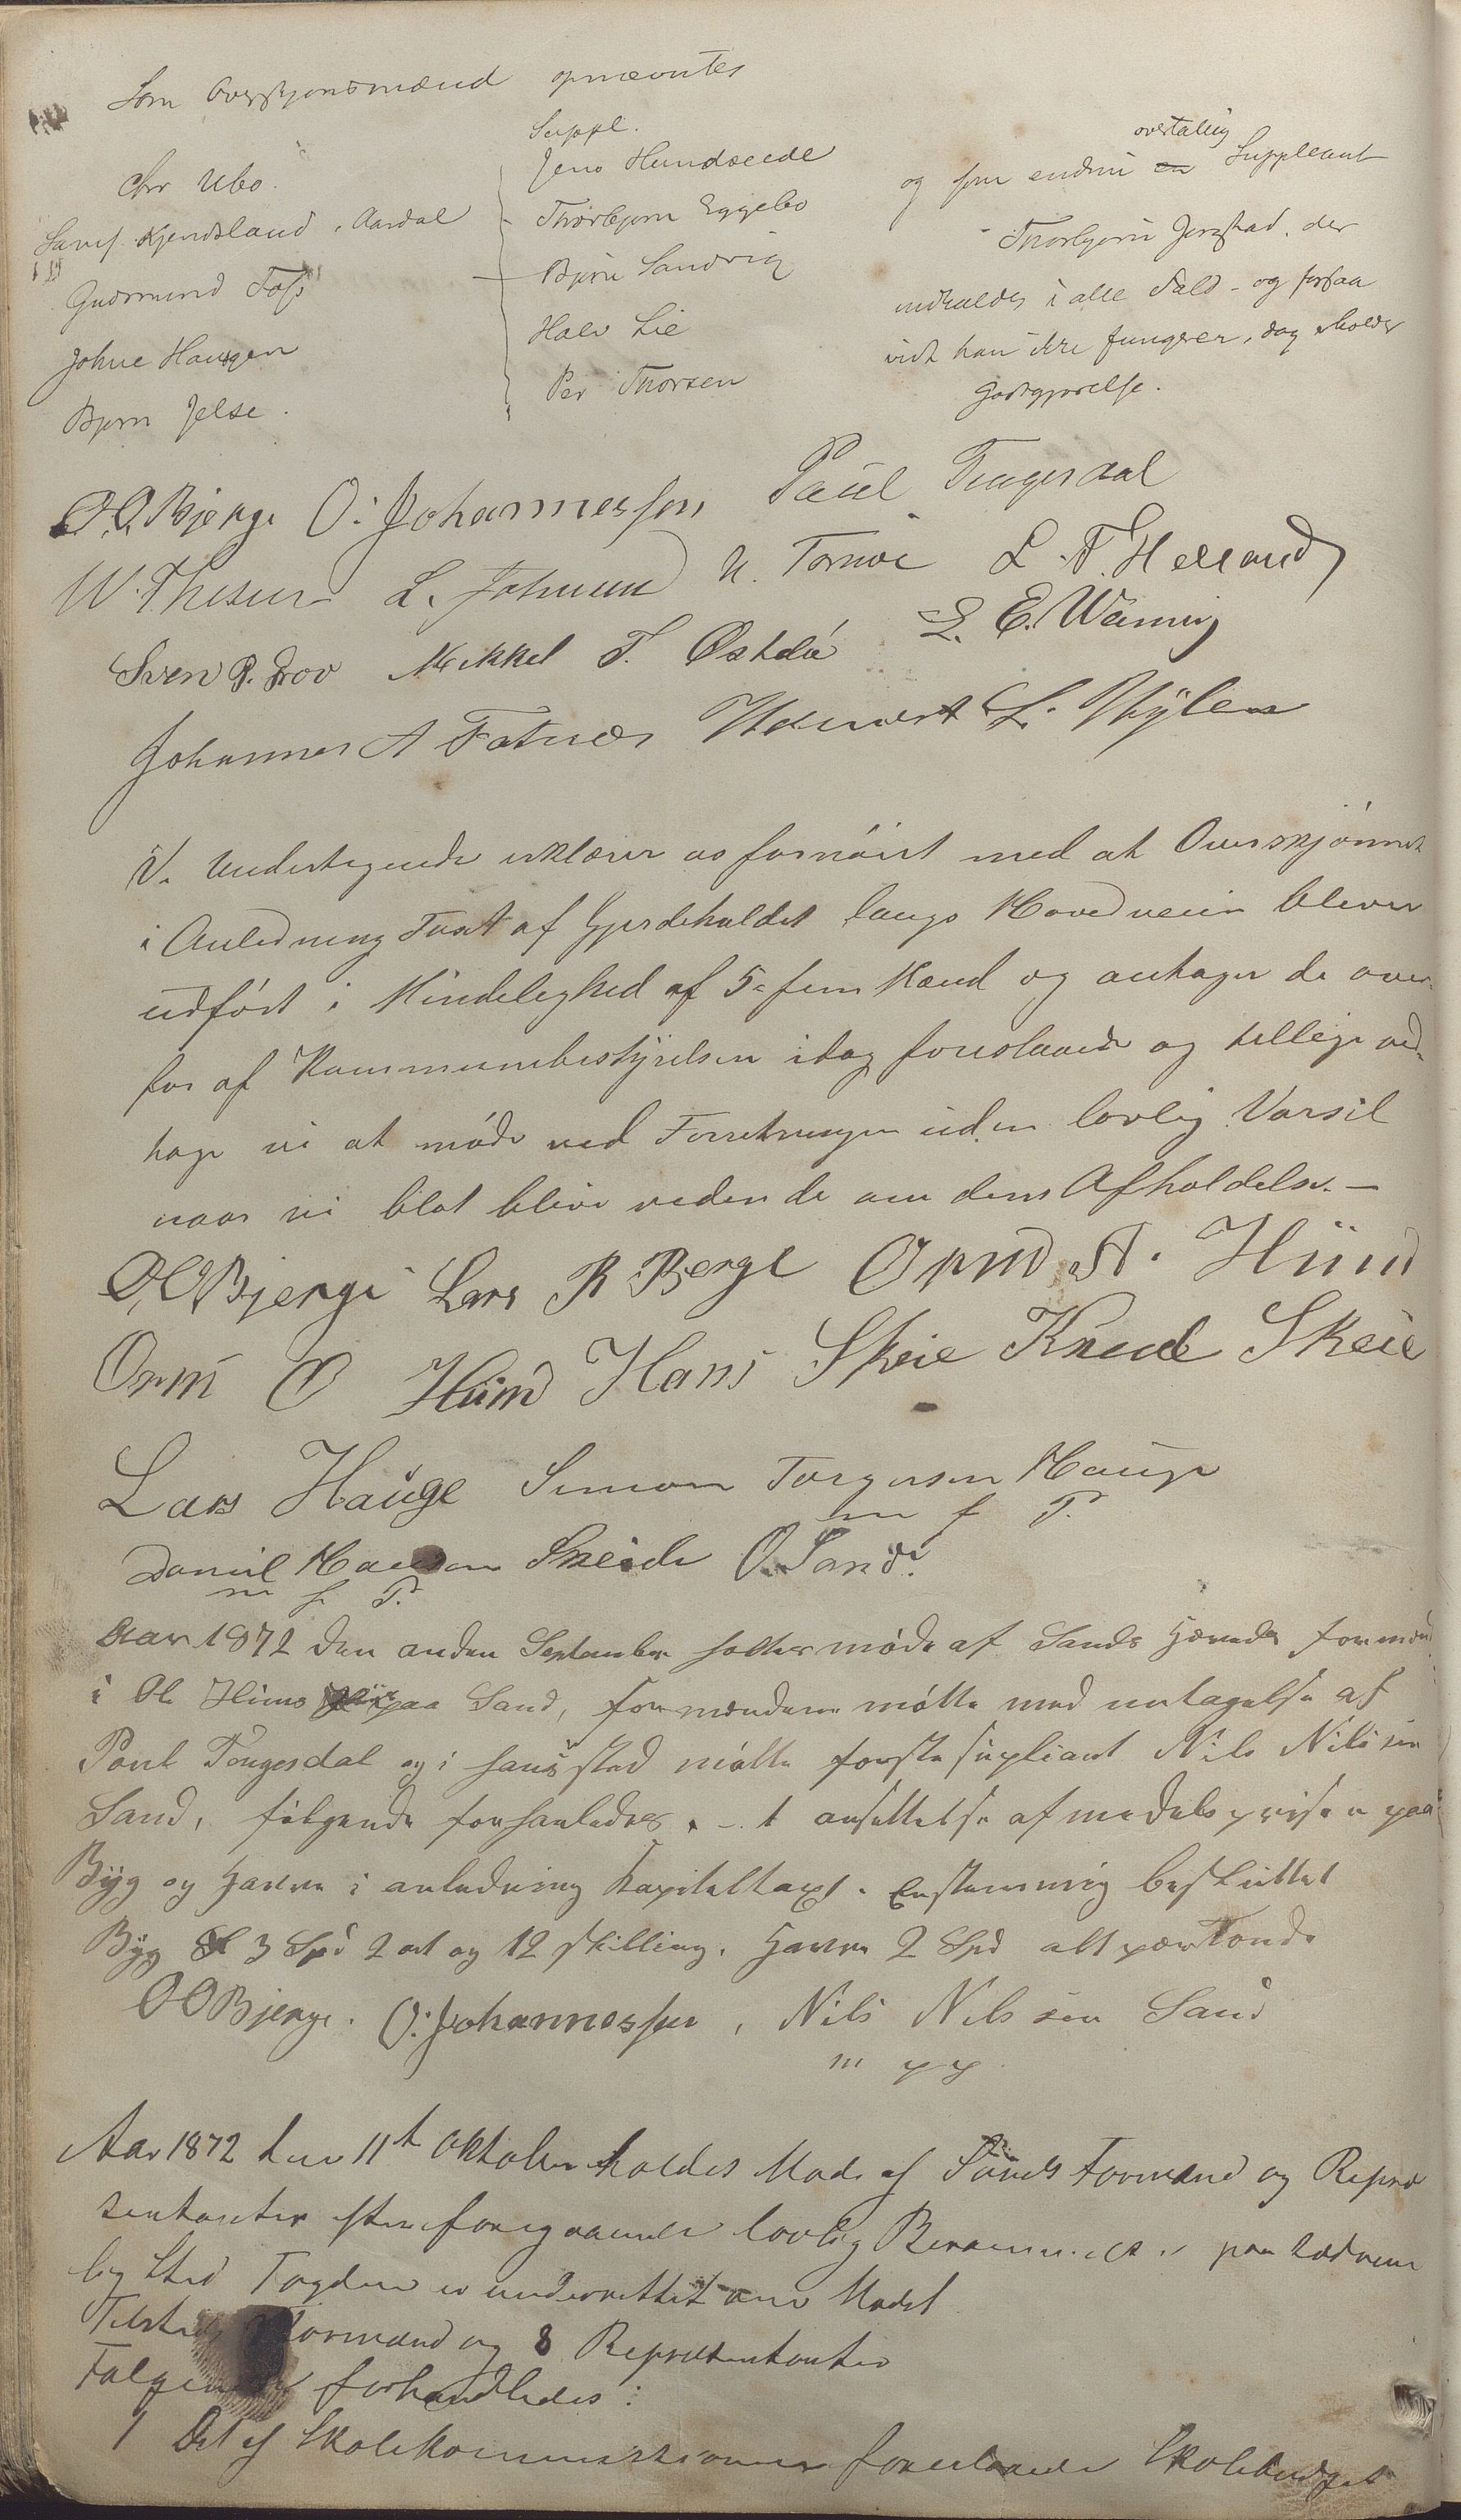 Som Overskjønsmænd opnævntes
Chr Ubø.
Kjendsland, Aardal
Gudmund Foss
Johne Haugen
Bjørn Jelse.
Suppl.
Jens Hundseede
Thorbjørn Eggebø
Bjørn Sandvig
Halv Lie
Per Thorsen
og som endnu en overtallig Suppleant
Thorbjørn Jøregstad, der
indkaldes i alle Fald – og forsaa
vidt han ikke fungerer, dog erholder
godtgjørelse.
O.O. Bjerge O: Johannessen Paul Tengesdal
W. Thesen L. Johnsen N. Tornøe L. T. Helland
Sven P. Brov Mikkel T. Østdä L. E. Warning
Johannes A Fatnæs L. Hylen
Vi Undertegnede erklærer os fornøiet med at Overskjønnet
i Anledning Taxt af Gjerdeholdet langs Hovedveien bliver
udført i Mindelighed af 5 = fem Mænd og antager de over
for af Kommunebestyrelsen idag foreslaaede og tillige ved
tage vi at møde ved Forretningen uden lovlig Varsil
naar vi blot blive vidende om dens Afholdelse. —
O,O Bjerge Lars R Berge Orm A. Hüim
Orm O Hüim Hans Skeie Knud Skeie
Lars Hauge Simon Torgersen Hauge
m f P.
Daniel Hansen Skeide O. Sand.
m f P.
Aar 1872 den anden September holtes møde af Sands Herreds formænd
i Ol. Hiims paa Sand, formændene møtte med untagelse af
Poul Tengesdal og i hans sted møtte første supliant Nils Nilsen
Sand, følgende forhanledes. – 1 ansettelse af medels prisen paa
Byg og Havre i anledning Kapiteltaxt. Enstemmig besluttet
Byg 3 Spd 2 ort og 12 skilling. Havre 2 Spd alt pær Tønde
O O Bjerge. O: Johannessen, Nils Nilssen Sand
m p p
Aar 1872 den 11te Oktober holdes Møde af Sands Formænd og Repræ
sentanter efter foregaaende lovlig Berammelse paa sædvan
lig Sted Fogden er underrettet om Mødet
Tilstede Formænd og 8 Repræsentanter
Følgende forhandledes:
1 Det af Skolekommissionen foreslaaede Skolebudget